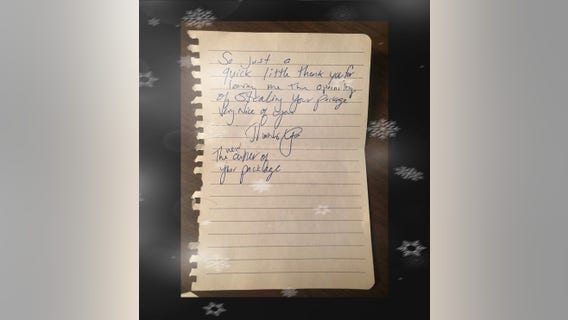 So Just a
quick little thank you for
leaving me the
of Stealing your package
Very Nice of you
Thank You
new
The owner of
your package